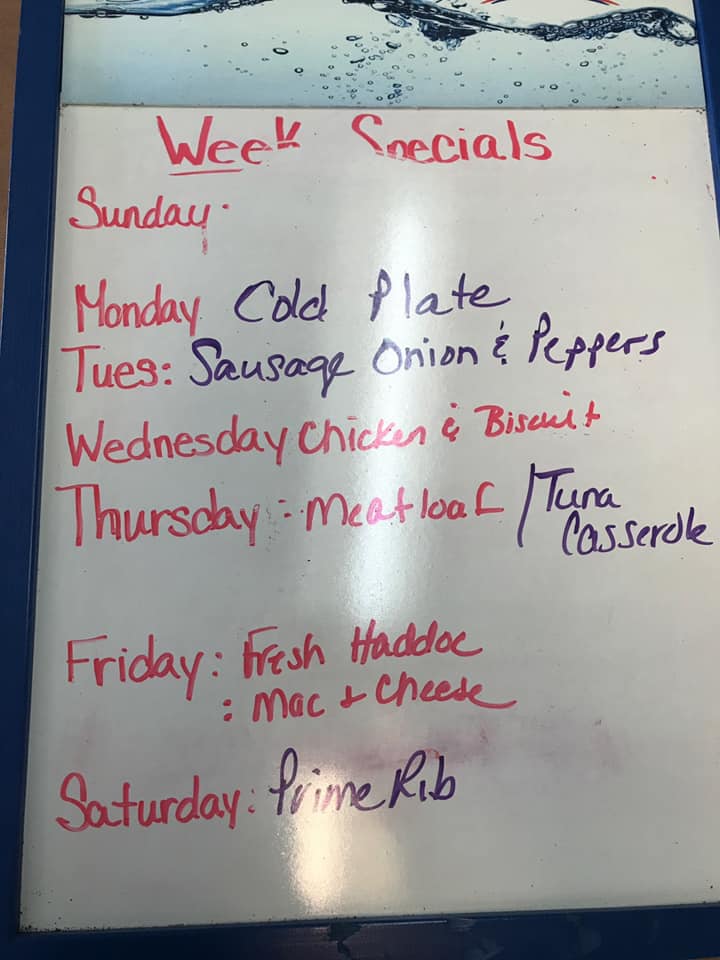 Week Specials
Sunday.
Monday Cold Plate
Tues: Sausage Onion & Peppers
Wednesday Chicken & Biscuit
Thursday: Meatloaf / Tuna
Casserole
Friday: Fresh Haddoc
: Mac & Cheese
Saturday: Prime Rib